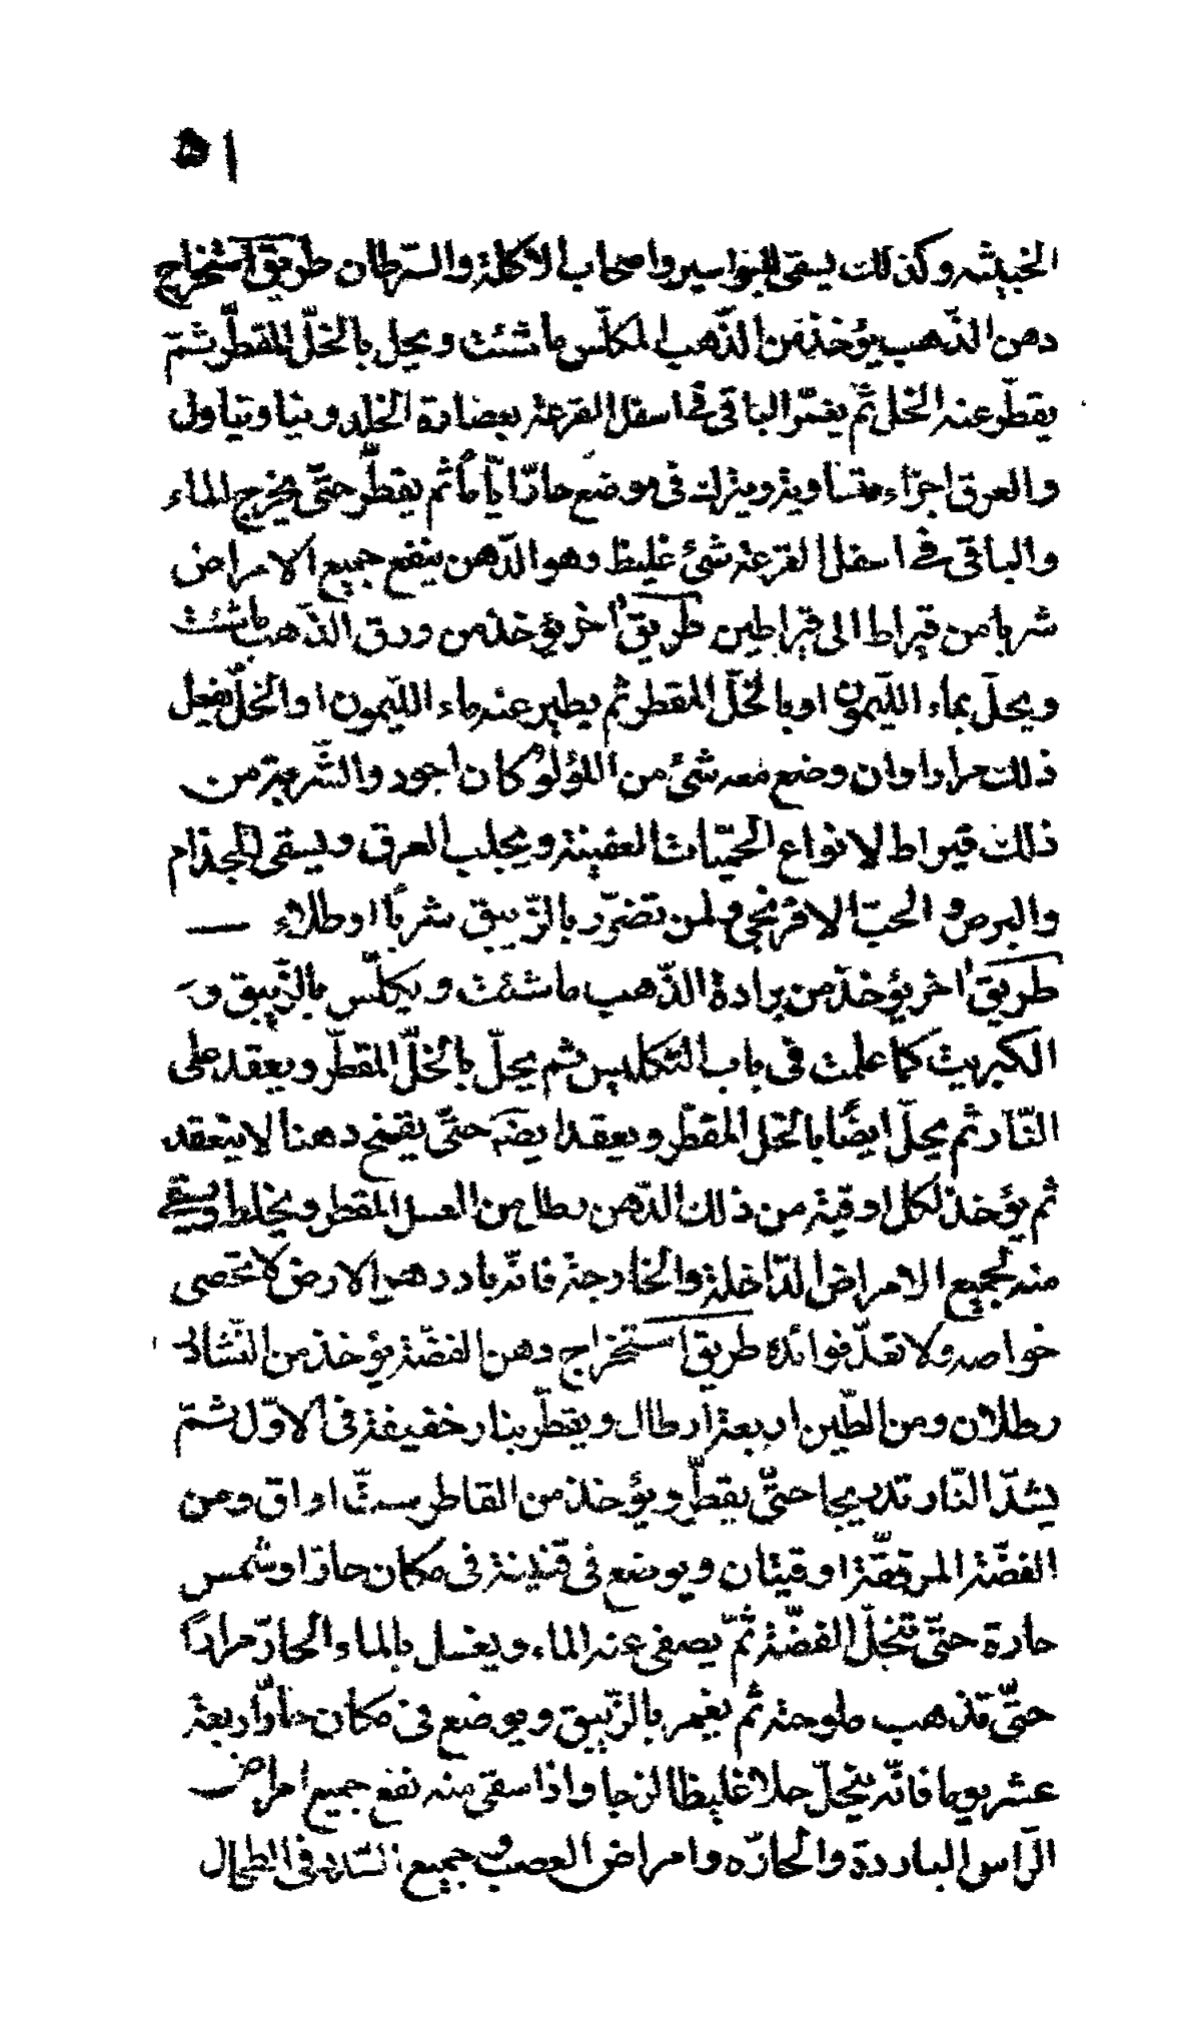 ٥١
الخبيثه وكذلك يسقى للبواسير واصحاب الاكلة والسّرطان طريق استخراج
دهن الذّهب يؤخذ من الذّهب المكلّس ما شئت ويحل بالخلّ المقطّر ثمّ
يقطّر عنه الخل ثّم يغمّر الباقى فى اسفل القرعة بعضادة الخلد
والعرق اجزاء متساوية ويترك فى موضع حارّ ايّاماً ثم يقطّر حتّى يخرج الماء
والباقى فى اسفل القرعة شئ غليظ وهو الدّهن ينفع جميع الامراض
شربا من قيراط الى قيراطين طريق اخر يؤخذ من ورق الذّهب ما شئت
ويحلّ بماء اللّيمون او بالخلّ المقطر ثم يطير عنه ماء اللّيمون او الخلّ يفعل
ذلك مرارا وان وضع معه شئ من اللؤلؤ كان اجود والشّربة من
ذلك قيراط لانواع الحميّات العفينة ويجلب العرق ويسقى للجذام
والبرص و الحبّ الافرنجى ولمن تضرّر بالزّيبق شرباً او طلاء
طريق اخر يؤخذ من برادة الذّهب ما شئت ويكلّس بالزّيبق و
الكبريت كما علمت فى باب التكليس ثم يحلّ بالخلّ المقطّر ويعقد على
النّار ثم يحلّ ايضًا بالخل المقطّر ويعقد ايضَه حتّى يقيح دهنا لا ينعقد
ثم يؤخذ لكل اوقية من ذلك الدّهن رطل من العسل المقطر ويخلط ويسقى
منه لجميع الامراض الدّاخلة والخارجة فانّه بادردهر الارض لا تحصى
خواصه ولا تعدّ فوائده طريق استخراج دهن الفضّة يؤخذ من النّشادر
رطلان ومن الطّين اربعة ارطال ويقطّر بنار خفيفة فى الاوّل ثمّ
يشدّ النّار تدريجا حتّى يقطّر ويؤخذ من القاطر ستّ اواق ومن
الفضّة المرقّقة اوقيتان ويوضع فى قنينة فى مكان حارّ او شمس
حارة حتّى تنحلّ الفضّة ثمّ يصفى عنه الماء ويغسل بالماء الحارّ مراراً
حتّى تذهب ملوحته ثم يغمر بالزّيبق ويوضع فى مكان حارّ اربعة
عشر يوما فانّه ينحلّ حلا غليظا لزجا واذا سقى منه نفع جميع امراض
الرّاس الباردة والحارّه وامراض العصب و جميع السّدد فى الطحال